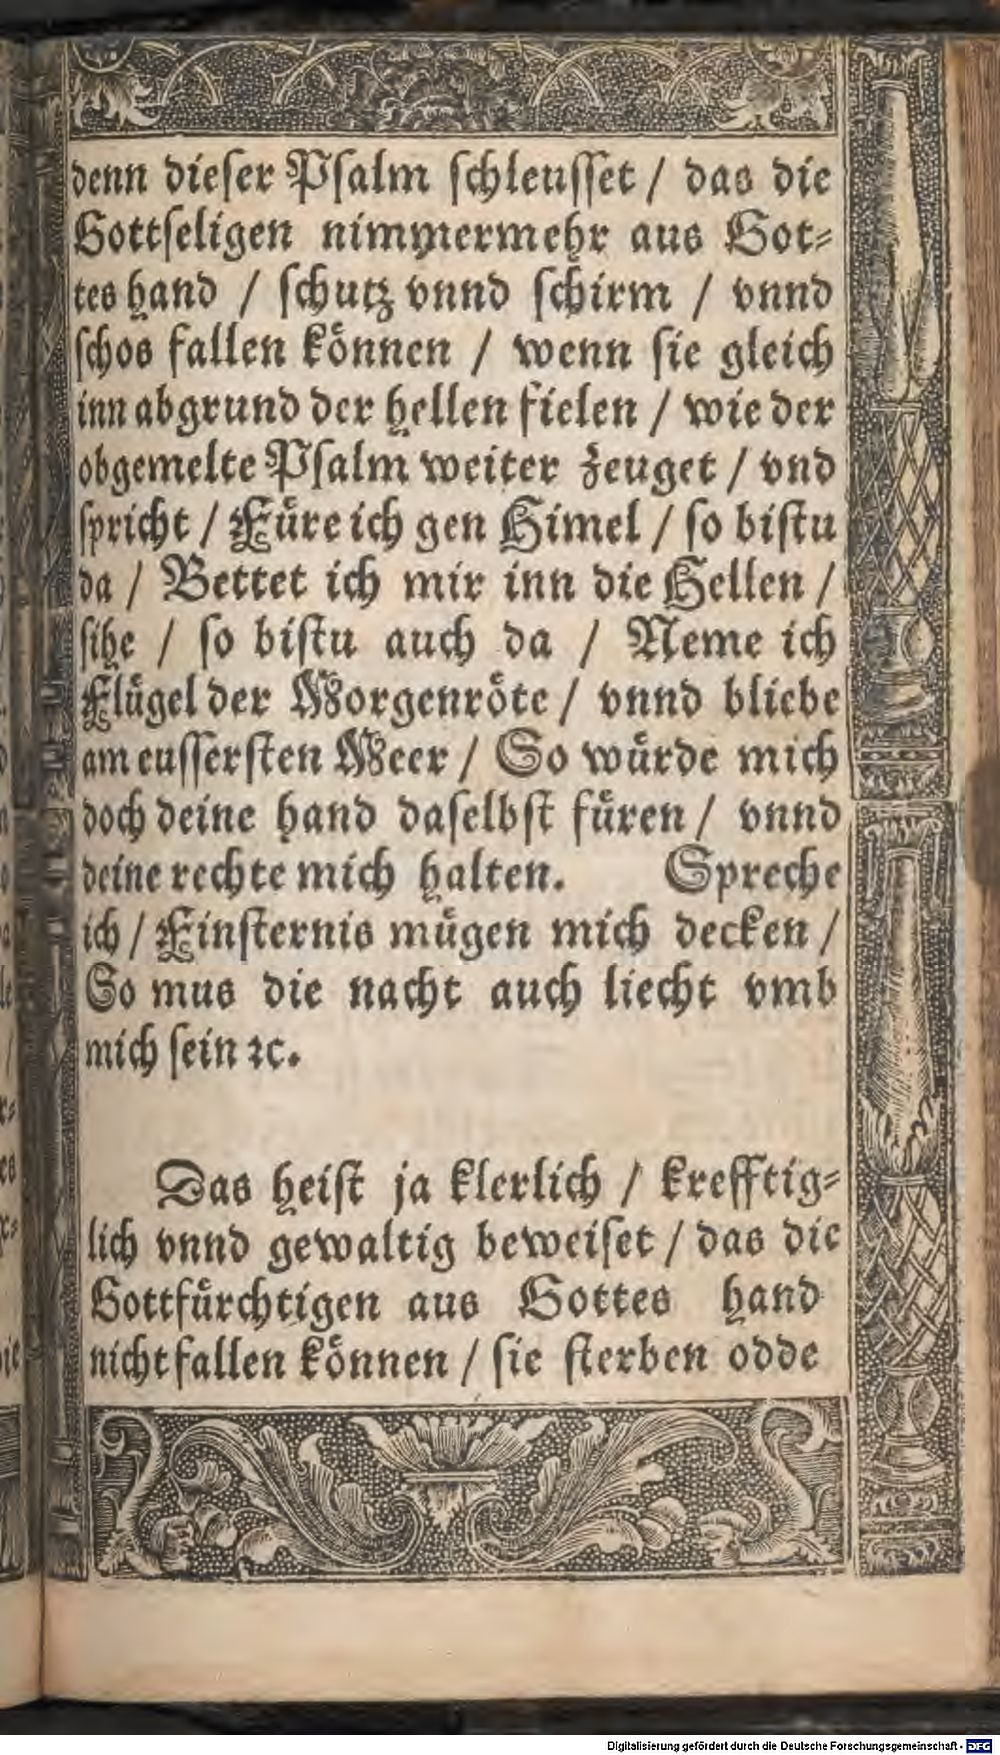 denn dieſer Pſalm ſchleuſſet / das die
Gottſeligen nimmermehr aus Got⸗
tes hand / ſchutz vnnd ſchirm / vnnd
ſchos fallen koͤnnen / wenn ſie gleich
inn abgrund der hellen fielen / wie der
obgemelte Pſalm weiter zeuget / vnd
ſpricht / Fuͤre ich gen Himel / ſo biſtu
da / Bettet ich mir inn die Hellen /
ſihe / ſo biſtu auch da / Neme ich
Fluͤgel der Morgenroͤte / vnnd bliebe
am euſſerſten Meer / So wuͤrde mich
doch deine hand daſelbſt fuͤren / vnnd
deine rechte mich halten. Spreche
ich / Finſternis muͤgen mich decken /
So mus die nacht auch liecht vmb
mich ſein ꝛc.
Das heiſt ja klerlich / krefftig⸗
lich vnnd gewaltig beweiſet / das die
Gottfuͤrchtigen aus Gottes hand
nicht fallen koͤnnen / ſie ſterben odde
Digitalisierung gefördert durch die Deutsche Forschungsgemeinschaft - DFG